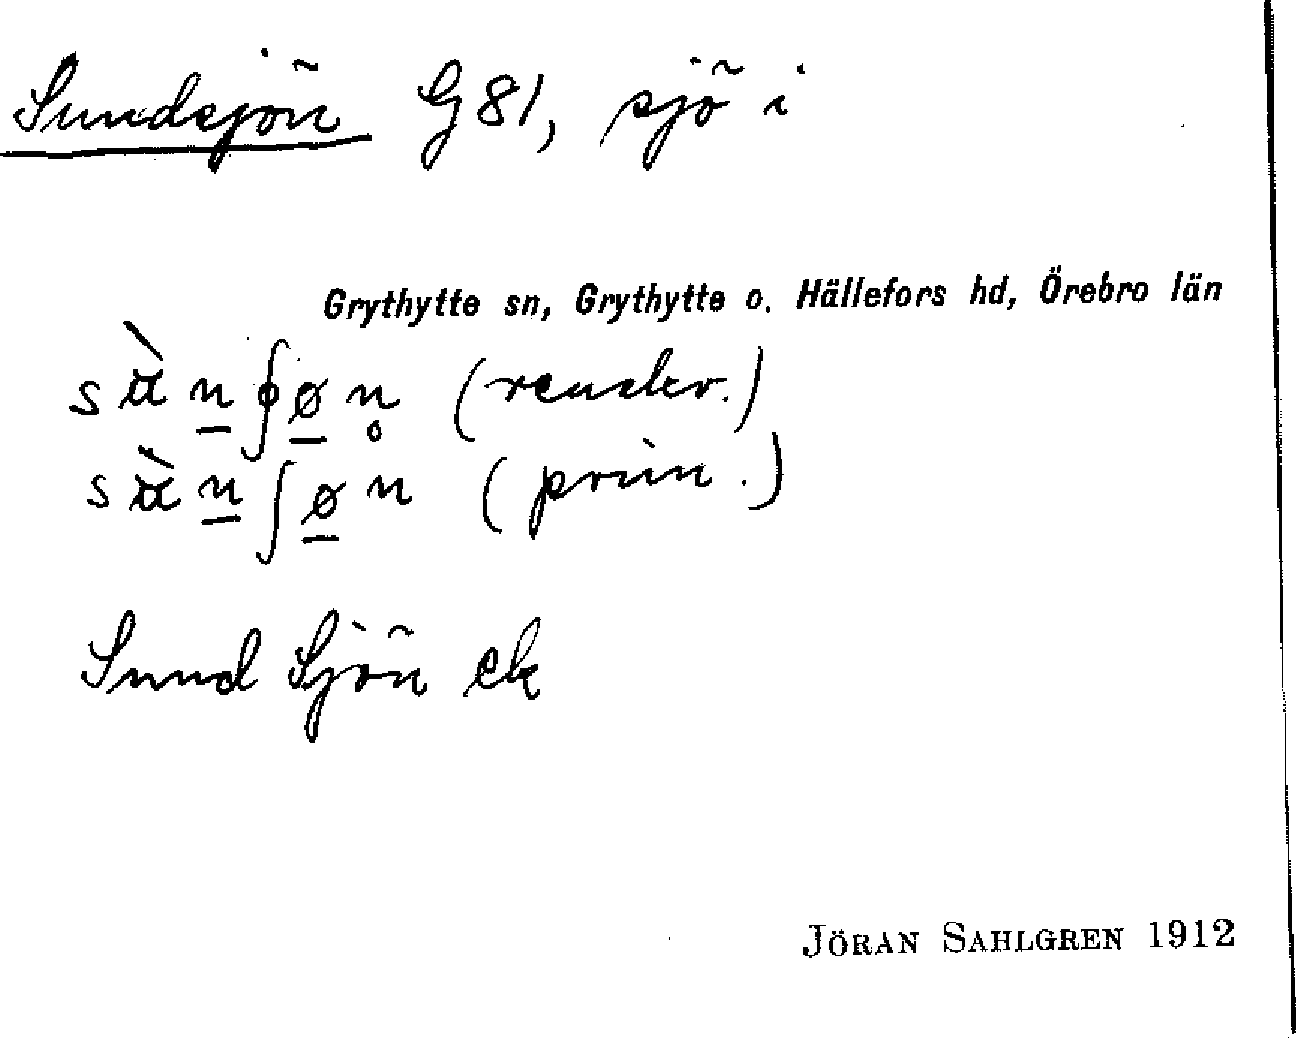 Sundsjön G 81, sjö i
Grythytte sn, Grythytte o. Hällefors hd, Örebro län
(prim.)
Sund Sjön ek
JÖRAN SAHLGREN 1912